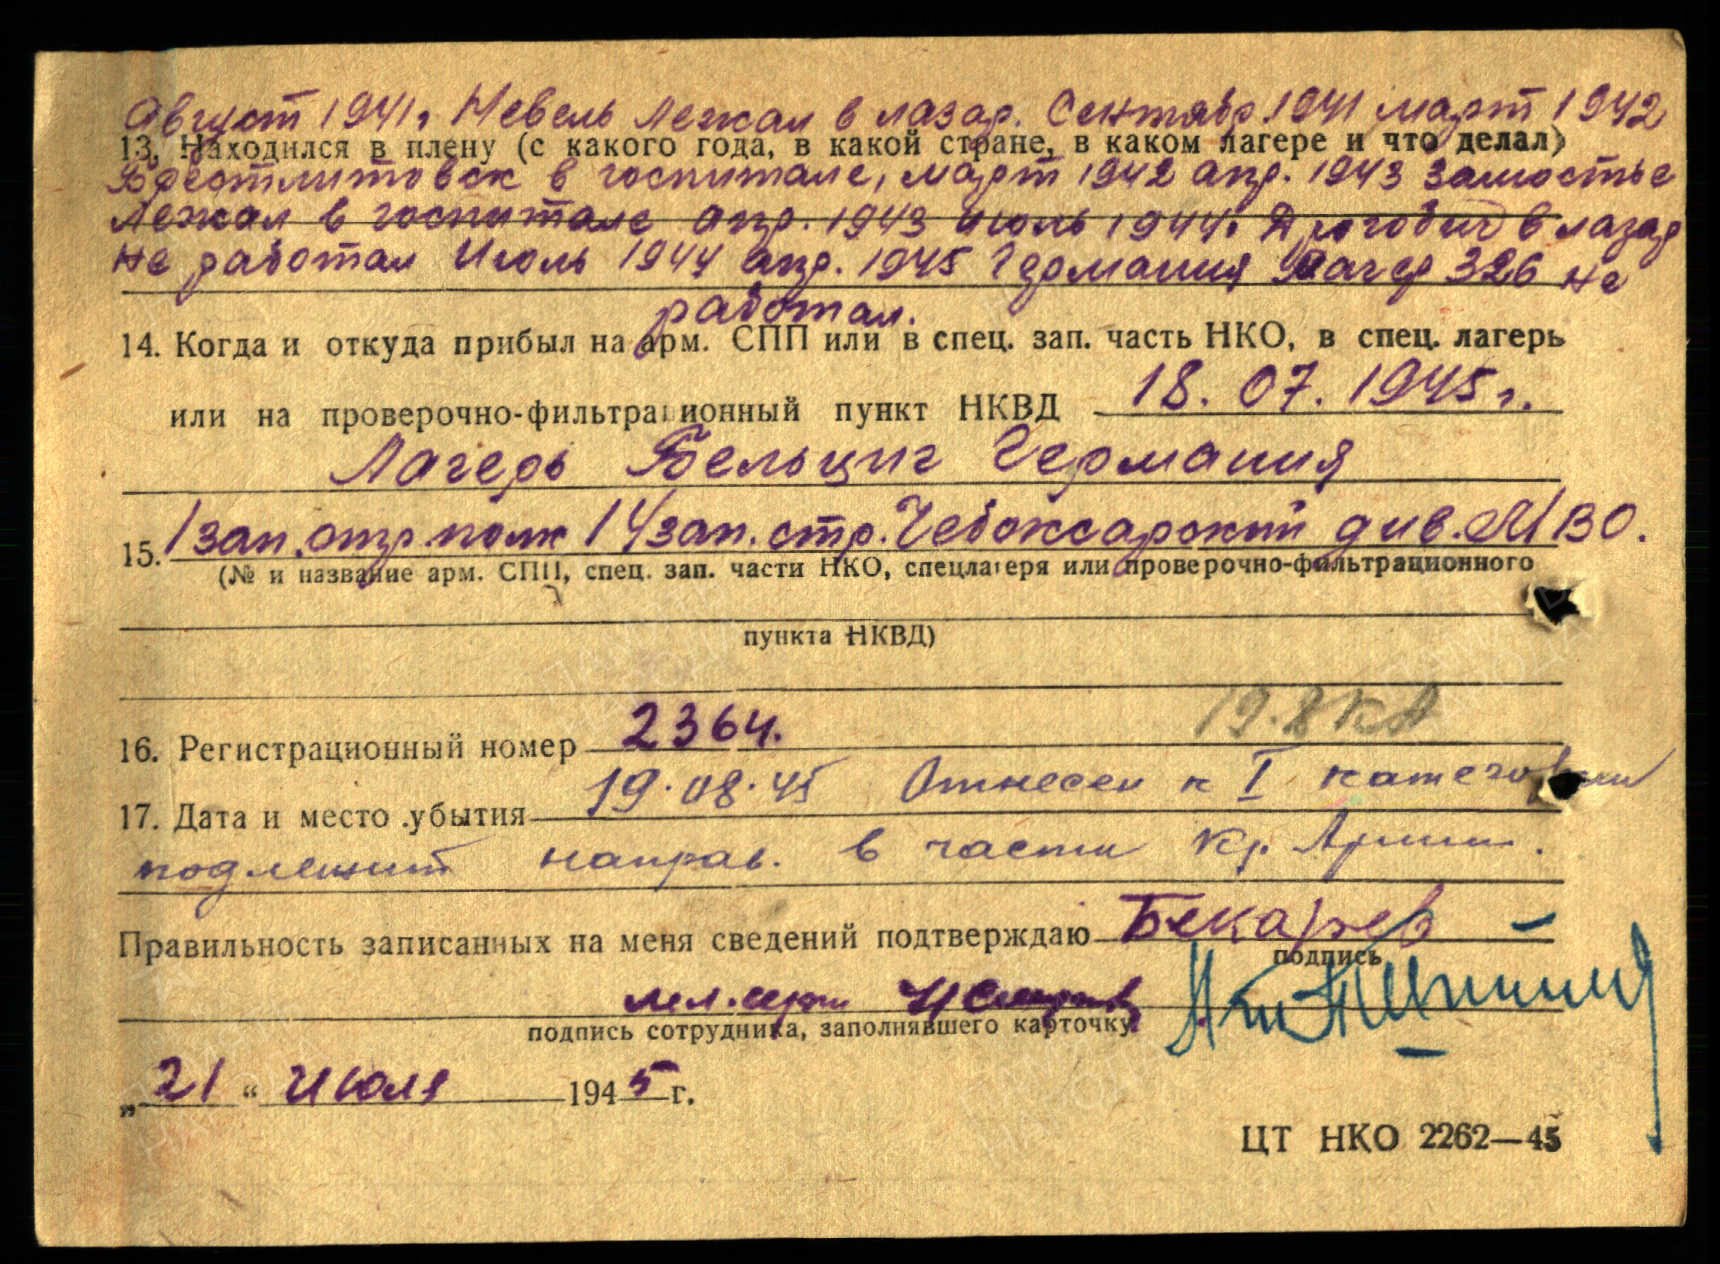 Август 1941г. Невель Лежал в лазар. Сентябр. 1941 март 1942
13. Находился в плену (с какого года, в какой стране, в каком лагере и что делал)
Брестлитовск в госпитале, март 1942 апр. 1943 Замостье
Лежал в госпитале апр. 1943 июль 1944г. Дрогобич в лазар
не работал Июль 1944 апр. 1945 Германия Лагер 326 не
работал.
14. Когда и откуда прибыл на арм. СПП или в спец. зап. часть НКО, в спец. лагерь
или на проверочно-фильтрационный пункт НКВД 18. 07. 1945г.
Лагерь Бельциг Германия
15. 1 зап. стр. полк 14 зап. стр. Чебоксарской див. М ВО.
(№ и название арм. СПП, спец. зап. части НКО, спецлагеря или проверочно-фильтрационного
пункта НКВД)
19.8 КА
16. Регистрационный номер 2364.
17. Дата и место убытия 19.08.45 Отнесен к I категории
подлежит направ. в части Кр. Армии.
Правильность записанных на меня сведений подтверждаю Бекарев
подпись
мл. серж
подпись сотрудника, заполнявшего карточку
„21“ Июля 1945 г.
ЦТ НКО 2262—45